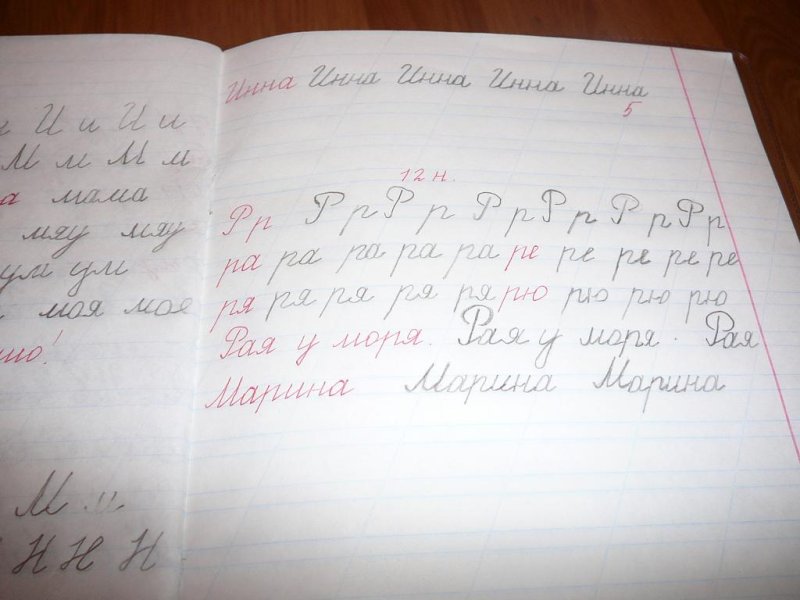 И и И и
М м М м
мама
мяу мяу
ум ум
моя моя
М м
Н Н Н
Инна Инна Инна Инна Инна
5
12 н.
Р р Р р Р р Р р Р р Р р Р р
ра ра ра ра ра ре ре ре ре ре
ря ря ря ря ря рю рю рю рю
Рая у моря. Рая у моря. Рая
Марина Марина Марина